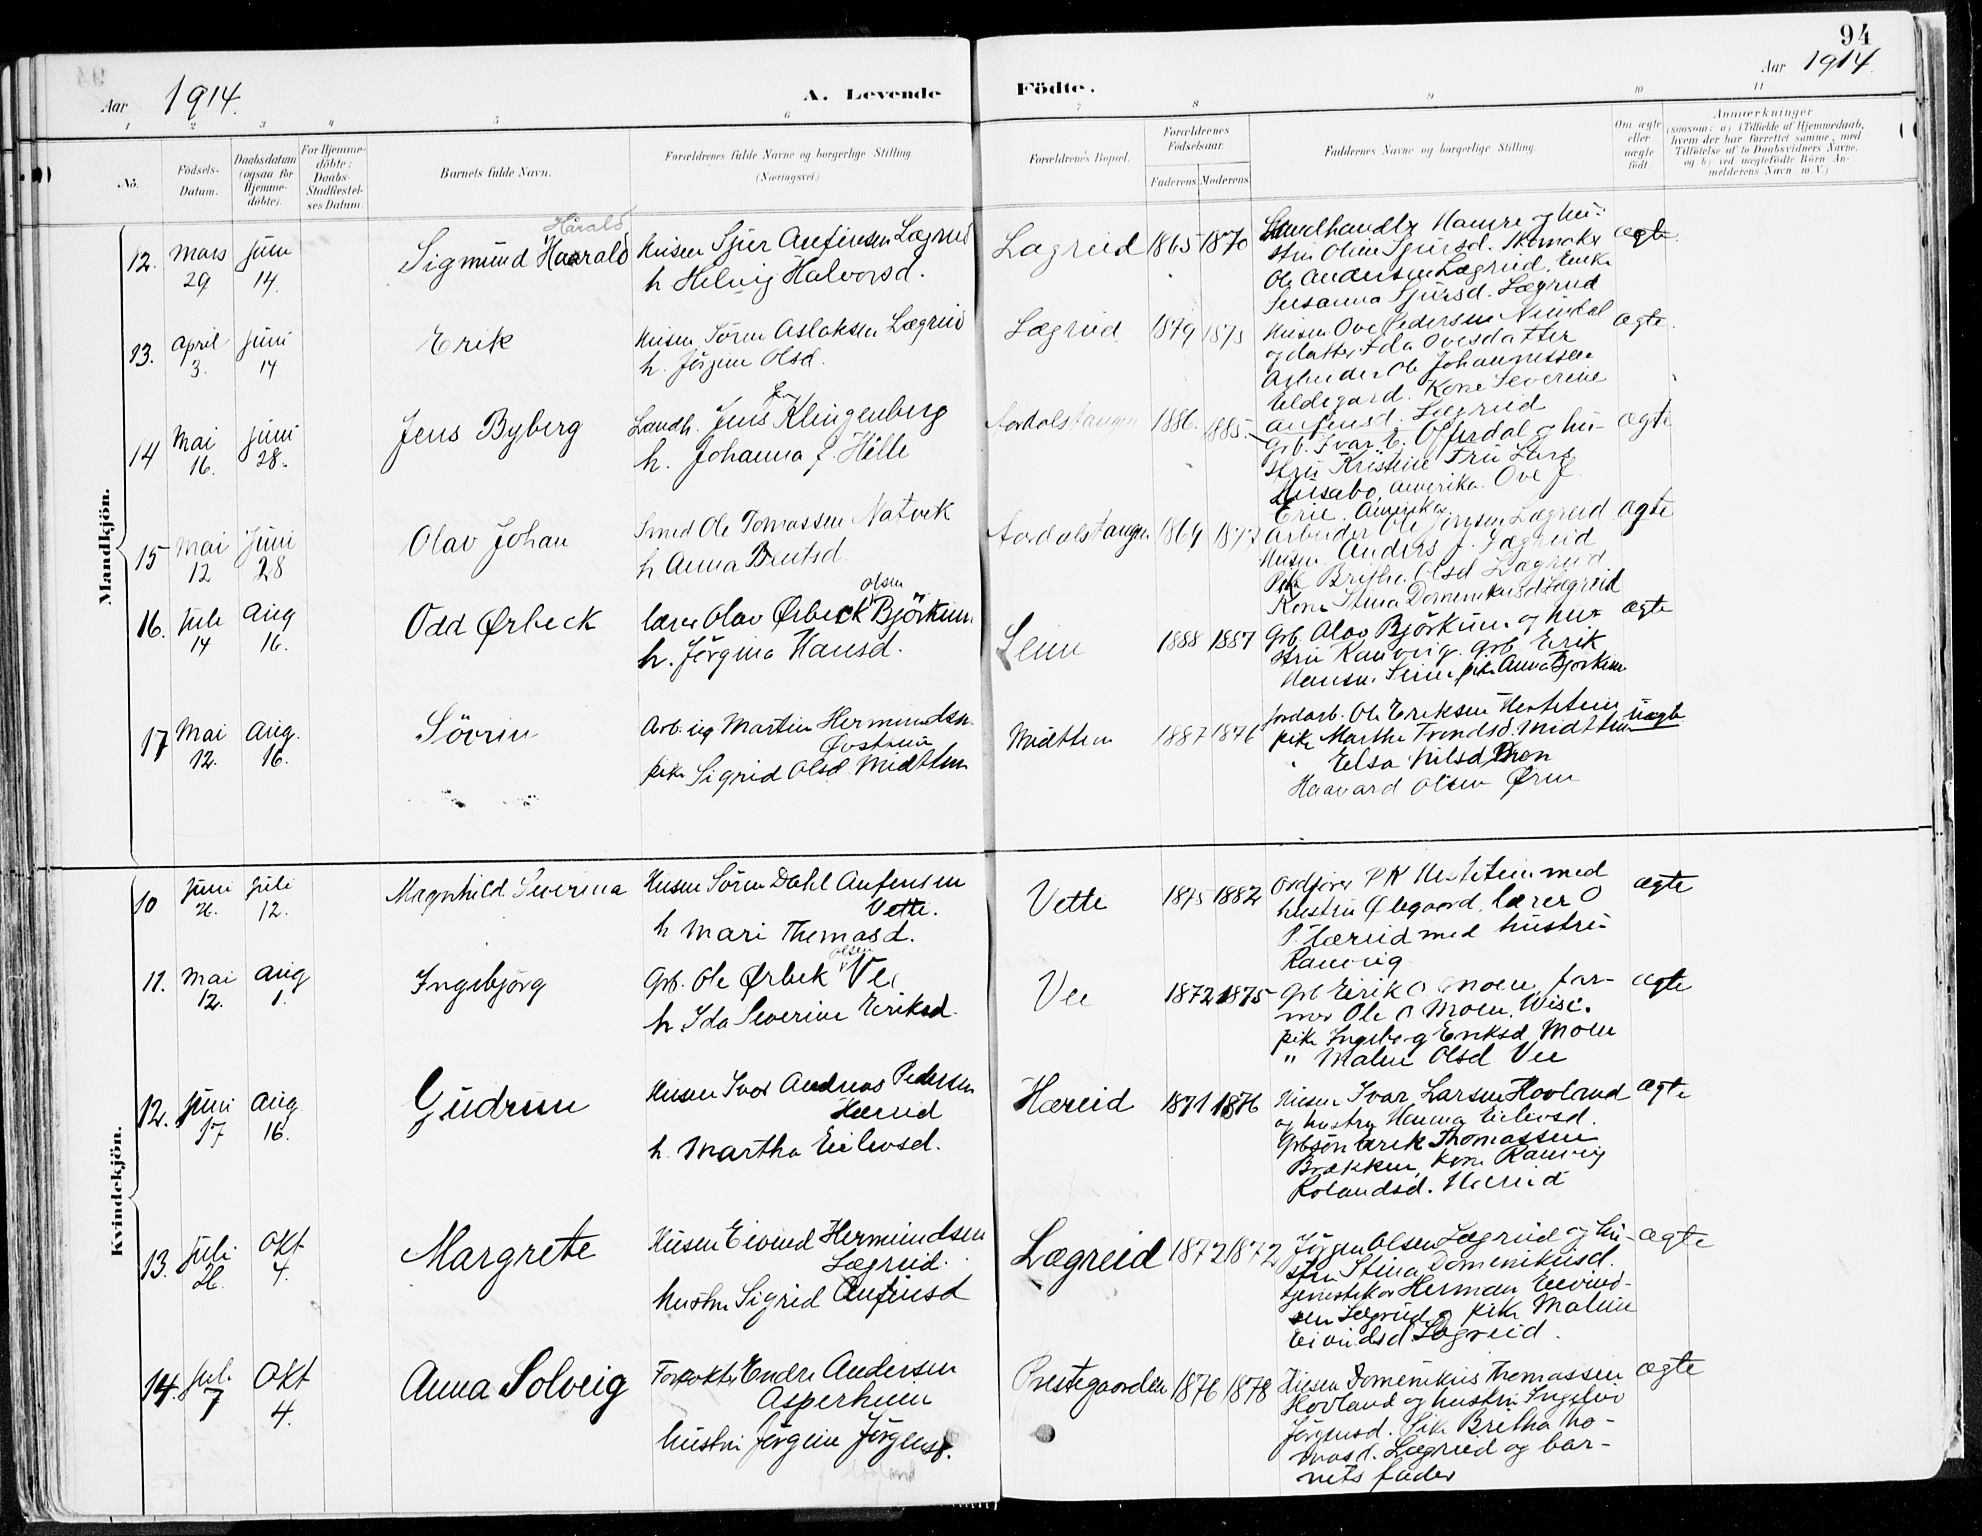 94
Aar 1914.
A. Levende
Födte.
Aar 1914.
1 2 3 4 5 6 7 8 9 10 11
No.
Födsels-Datum.
Daabsdatum (ogsaa for Hjemmedöbte).
For Hjemmedöbte: Daabs-Stadfæstelses Datum.
Barnets fulde Navn.
Forældrenes fulde Navne og borgerlige Stilling
(Næringsvei)
Forældrenes Bopæl.
Forældrenes Födselsaar.
Faderens Moderens
Faddernes Navne og borgerlige Stilling.
Om ægte eller uægte født.
Anmærkninger
(saasom: a) i Tilfælde af Hjemmedaab,
hvem der har forrettet samme, med
Tilföielse af to Daabsvidners Navne,
og b) ved uægtefödte Börn Anmelderens Navn m.V.)
Mandkjön.
12. Mars 29 Juni 14.
Harald
Sigmund Haarald
Husm Sjur Anfinsen Lægreid
h Helvig Halvorsd.
Lægreid 1865 1870
Landhandler Hamre og hu-
stru Oline Sjursd. Skomaker
Ole Andersen Lægreid, Enke
Susanna Sjursd. Lægreid
ægte
13. April 3. Juni 14
Erik
Husm Sören Aslaksen Lægreid
h. Jörgine Olsd.
Lægreid 1879 1875
Husm Ove Pedersen Nundal
og datter Ida Ovesdatter
Arbeider Ole Johannessen
Eldegard. Kone Severine
Anfinsd. Lægreid
ægte.
14 Mai 16. Juni 28.
Jens Byberg
Landh. Jens Klingenberg
h. Johanna f. Hille
Aardalstangen 1886. 1885.
Grb. Ivar E. Offerdal og hu-
stru Kristine Fru Lars
Husabø, Amerika. Ove J.
Erie. Amerika.
ægte
15 Mai 12 Juni 28
Olav Johan
Smed Ole Tomassen Natvik
h Anna Bentsd.
Aardalstangen 1869 1877
Arbeider Ole Jensen Lægreid
Husm Anders J. Lægreid
Pike Brithe Olsd Lægreid
Kone Stina Domenikusd Lægreid
ægte
16. Juli 14 Aug 16.
Odd Ørbeck
olsen
lærer Olav Ørbeck Björkum
h. Jörgina Hansd.
Seim 1888 1887
Grb. Olav Björkum og hu-
stru Ranveig. Grb Erik
Hansen Seim pike Anna Bjorkum
ægte
17 Mai 12. Aug. 16.
Sövrin
Arb. ug Martin Hermundsen
Øvstun
pike Sigrid Olsd Midttun
Midttun 1887 1876
Jordarb. Ole Eriksen Hestetun
pike Marthe Trondsd. Midttun
" Elsa Nilsd Øren
Haavard Olsen Øren
uægte
Kvindekjön.
10 Juni 21. Juli 12.
Magnhild Severina
Husm Sören Dahl Anfensen
Vetti.
h Mari Thomasd.
Vette 1875 1882
Ordfører P K Hestetun med
hustru Ølegaard, lærer O
P. Hæreid med hustru
Ranveig
ægte
11. Mai 12. Aug 1.
Ingebjörg
olsen
Grb. Ole Ørbek Ve
h. Ida Severine Eiriksd.
Vee 1872 1875
Grb Eirik O Moen, far-
mer Ole O Moen, Wisc.
pike Ingeborg Eriksd. Moen
" Malene Olsd Vee
ægte
12. Juni 17 Aug 16.
Gudrun
Husm Ivar Andreas Pedersen
Hæreid
h. Martha Eilevsd.
Hæreid 1871 1876
Husm Ivar Larsen Hovland
og hustru Hanna Eilevsd.
Grbsön Erik Thomassen
Brækken, kone Ranveig
Rolandsd. Hæreid
ægte
13. Juli 26. Okt 4.
Margrete
Husm Eivind Hermundsen
Lægreid.
hustru Sigrid Anfinsd
Lægreid 1872 1872
Jörgen Olsen Lægreid og hu-
stru Stina Domenikusd.
tjenestekar Herman Eivind-
sen Lægreid, pike Malene
Eivindsd Lægreid.
ægte
14. Juli 7 Okt 4.
Anna Solveig
Forpakter Endre Andersen
Asperheim
hustru Jörgine Jörgensd.
f. Hovland
Prestegaarden 1876 1878
Husm Domenikus Thomassen
Hovland og hustru Ingebor
Jörgensd. Pike Britha To-
masd. Lægreid og bar-
nets fader
ægte